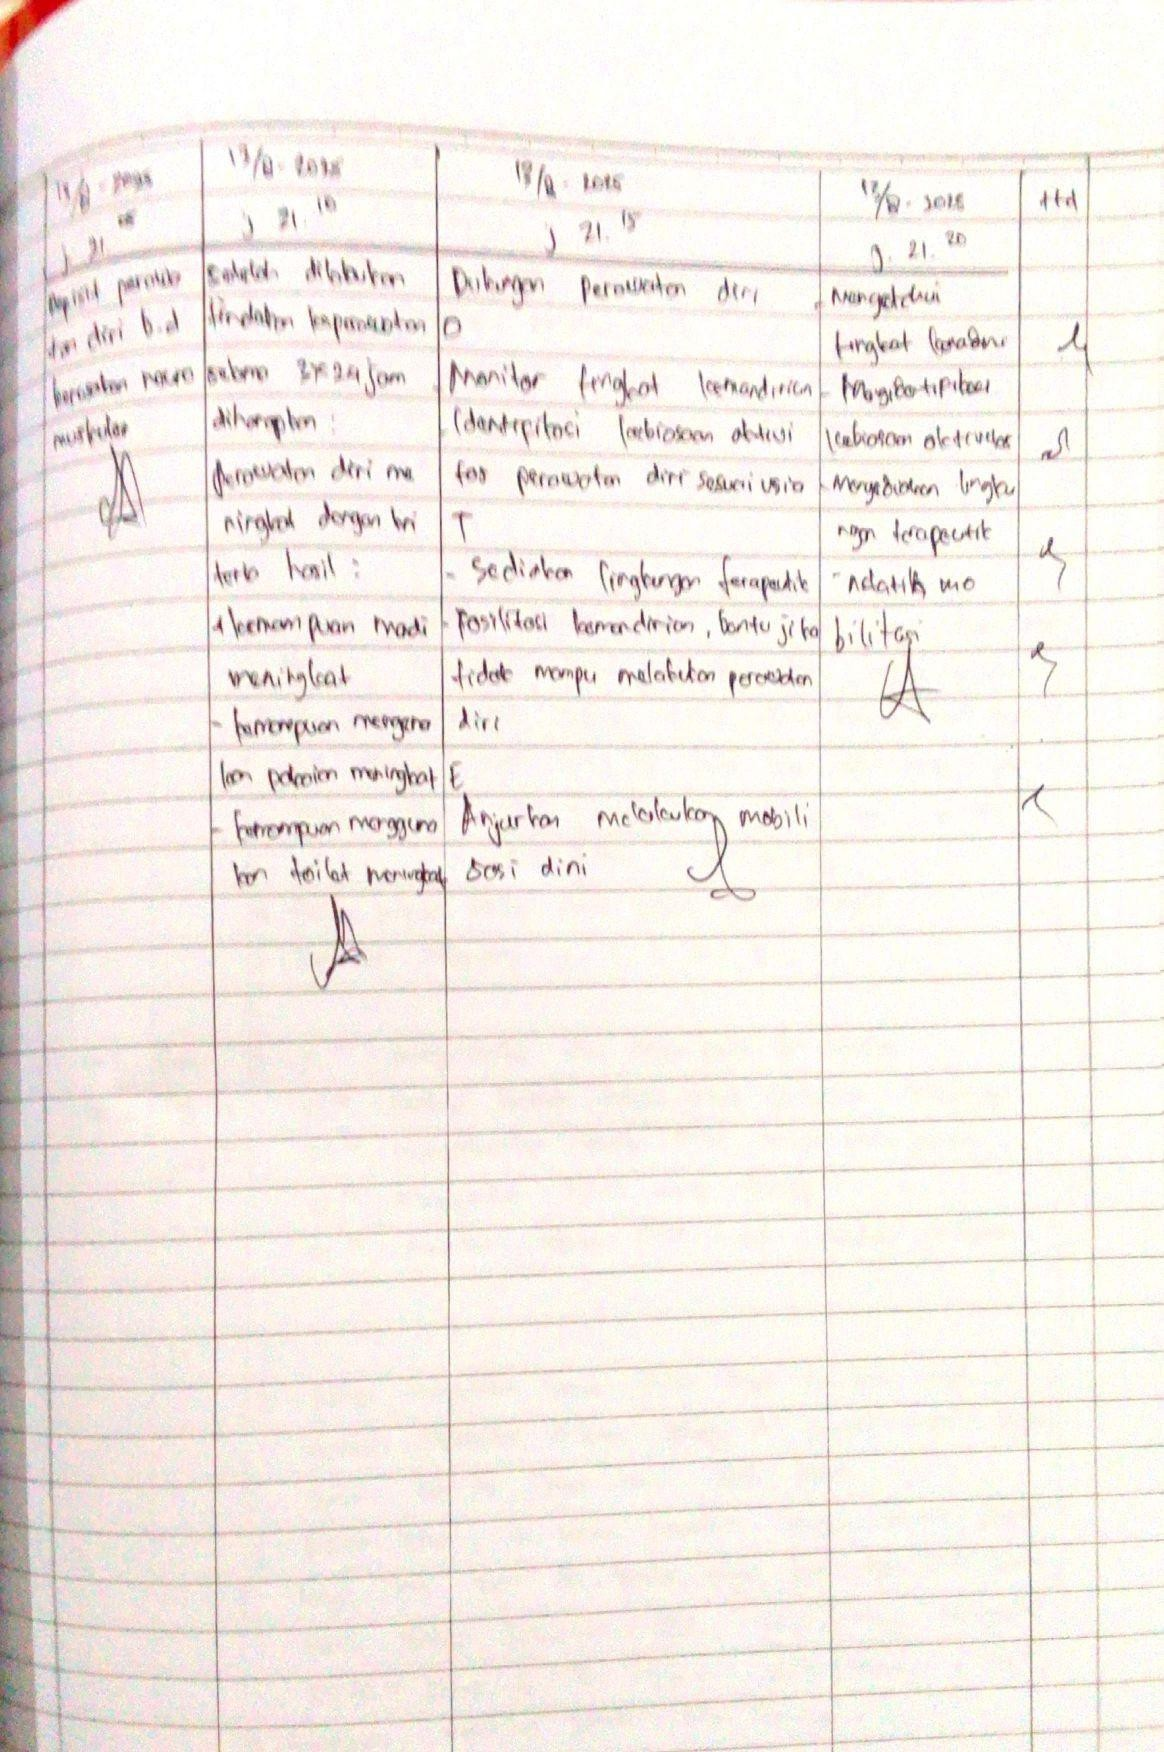 j 21.
Depisit perawa
tan diri b.d
kerusakan neuro
muskular
j 21. 10
Setelah dilakukan
tindakan keperawatan
selama 3x24 jam
diharapkan :
perawatan diri me
ningkat dengan kri
teria hasil :
kemampuan madi
meningkat
- kemampuan mengena
kan pakaian meningkat
- kemampuan mengguna
kan toilet meningkat
j 21. 15
Dukungan perawatan diri
O
Monitor tingkat kemandirian
Identipikasi kebiasaan aktivi
tas perawatan diri sesuai usia
T
- Sediakan lingkungan terapeutik
- Fasilitasi kemandirian, bantu jika
tidak mampu melakukan perawatan
diri
E
Anjurkan melakukan mobili
sasi dini
j. 21. 20
- Mengetahui
tingkat
kebiasaan aktivitas
- Menyediakan lingku
ngan terapeutik
- Melatih mo
bilitasi
ttd